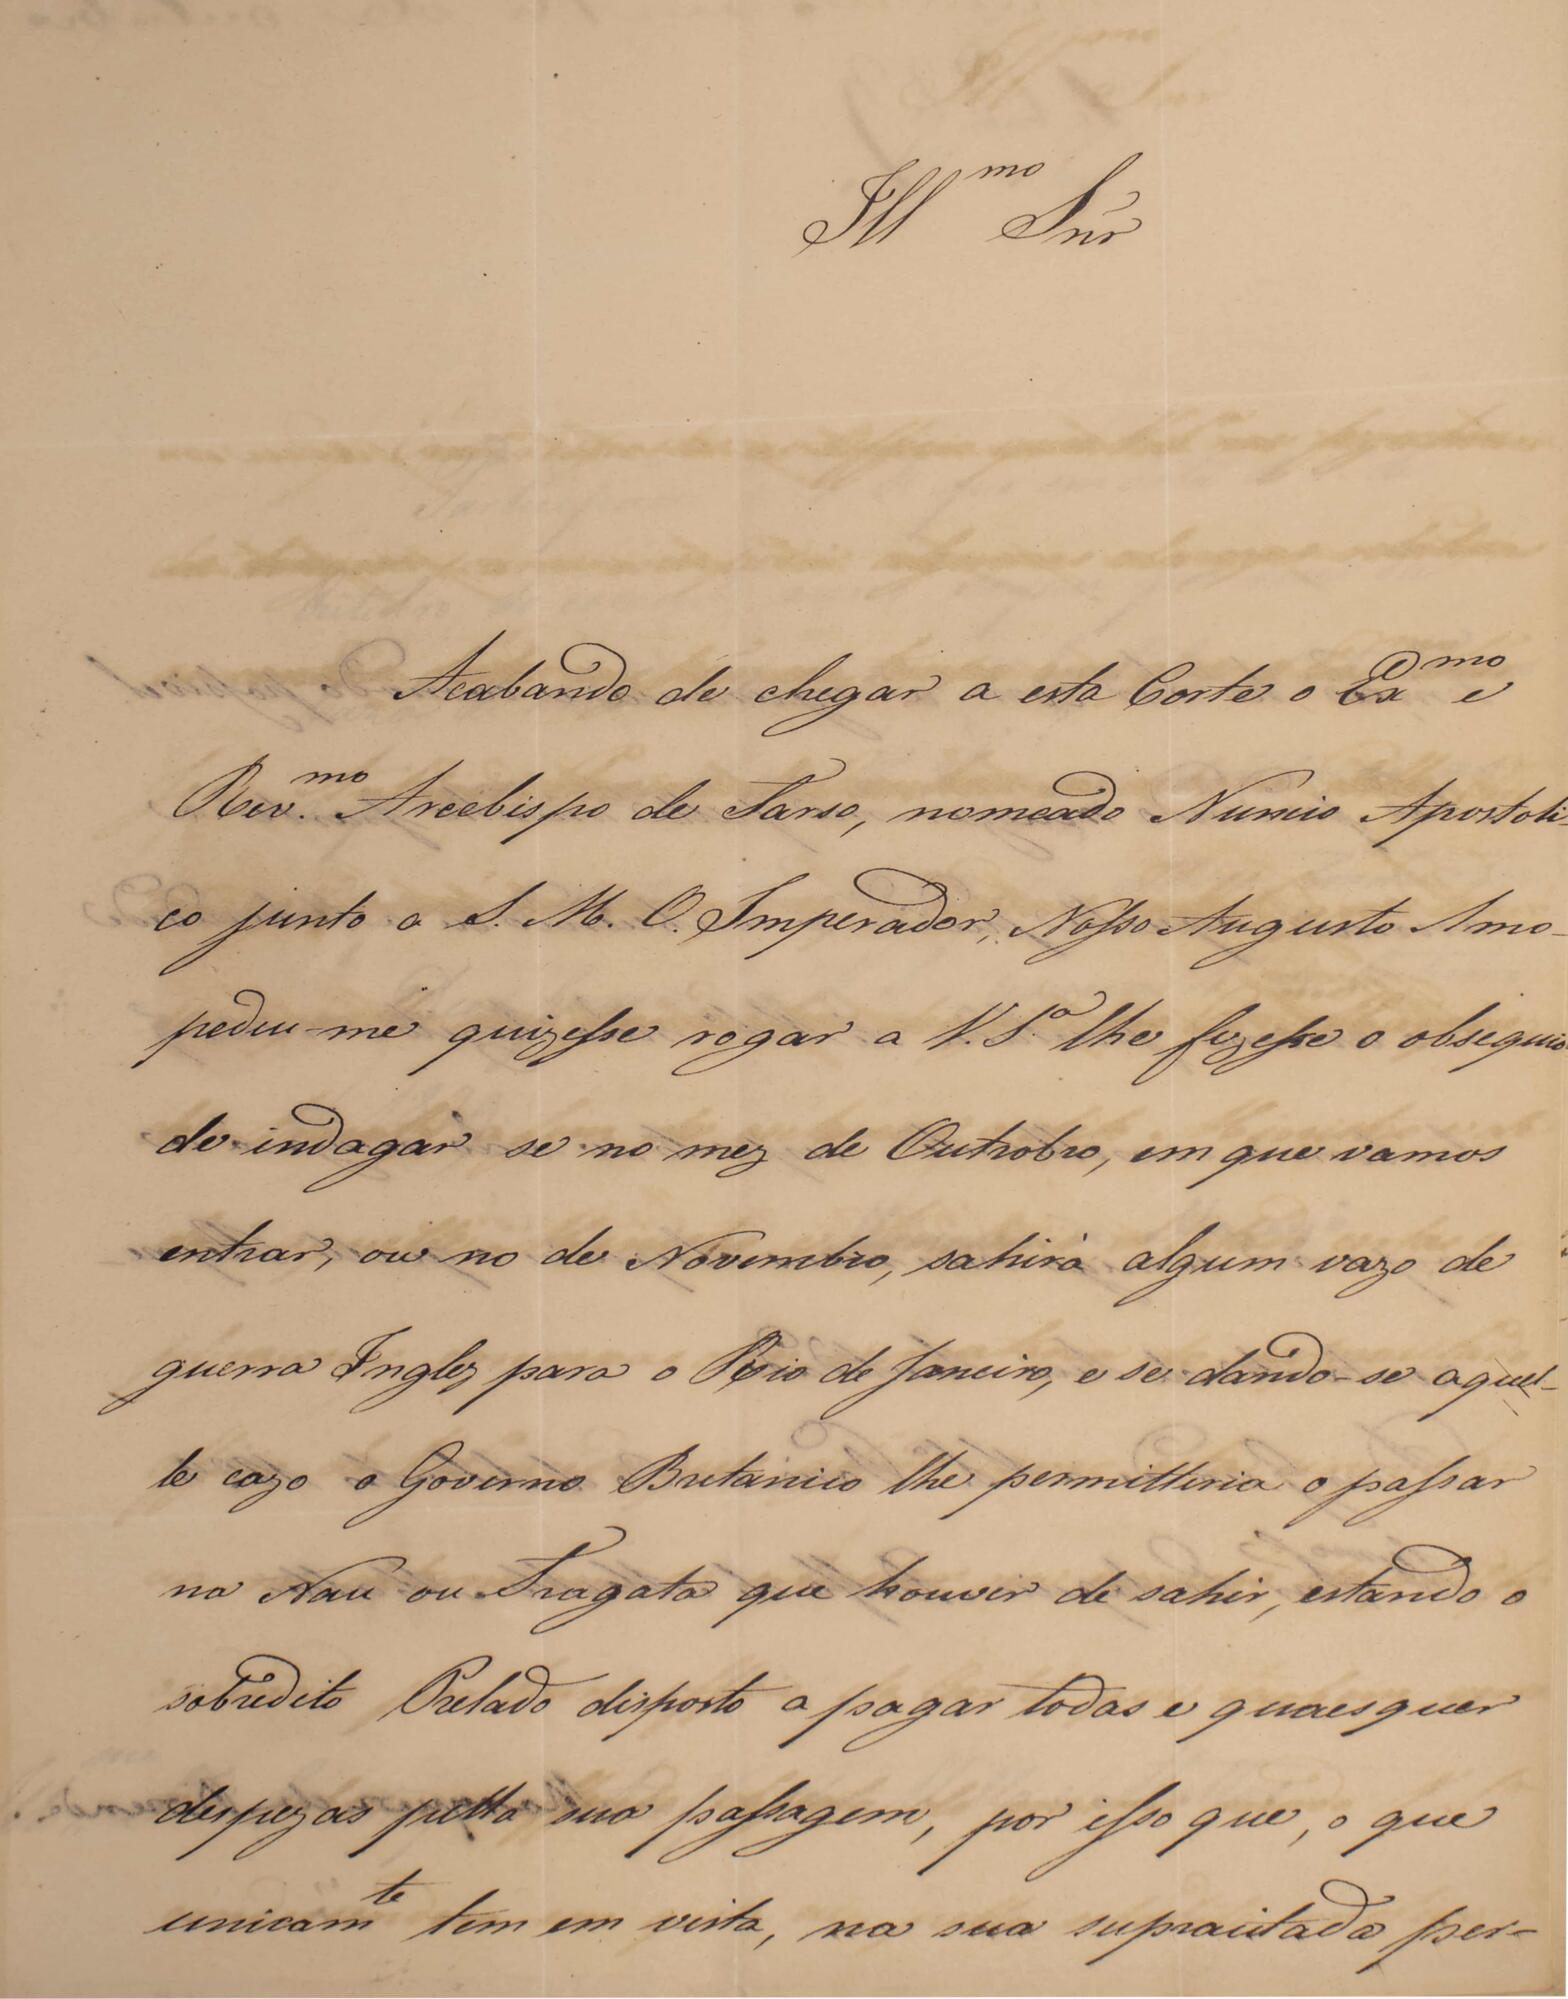 Ill.mo Snr
Acabando de chegar a esta Corte o Ex.mo e
Rev.mo Arcebispo de Tarso, nomeado Nuncio Apostoli-
co junto a S. M. O. Imperador, Nosso Augusto Amo-
pediu-me quizesse rogar a V. S.a lhe fizesse o obsequio
de indagar se no mez de Outrobro, em que vamos
entrar, ou no de Novembro, sahirá algum vazo de
guerra Inglez para o Rio de Janeiro, e se dando-se aquel-
le cazo o Governo Britanico lhe permitteria o passar
na Nau ou Fragata que houver de sahir, estando o
sobredito Prelado disposto a pagar todas e quaesquer
despezas pella sua passagem, por isso que, o que
unicam.te tem em vista, na sua supracitada per-